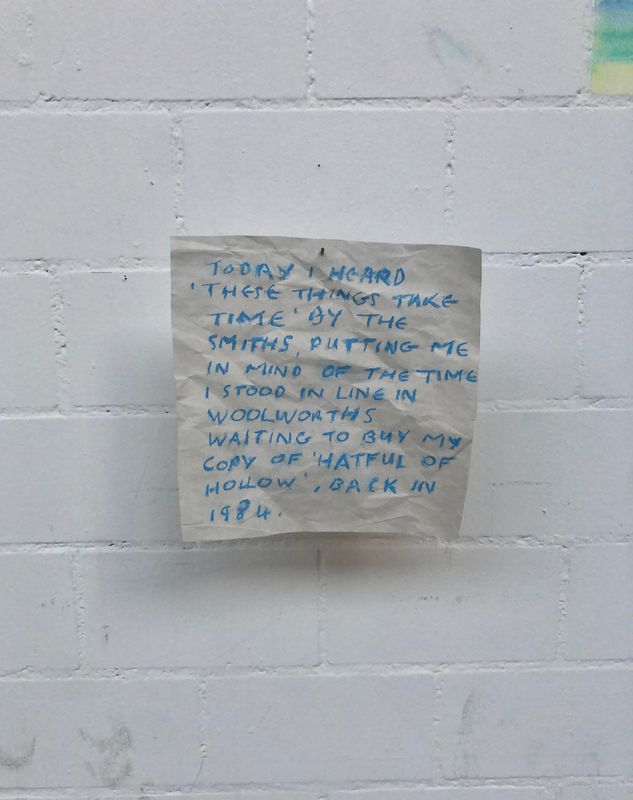 TODAY I HEARD
'THESE THINGS TAKE
TIME' BY THE
SMITHS, PUTTING ME
IN MIND OF THE TIME
I STOOD IN LINE IN
WOOLWORTHS
WAITING TO BUY MY
COPY OF 'HATFUL OF
HOLLOW', BACK IN
1984.